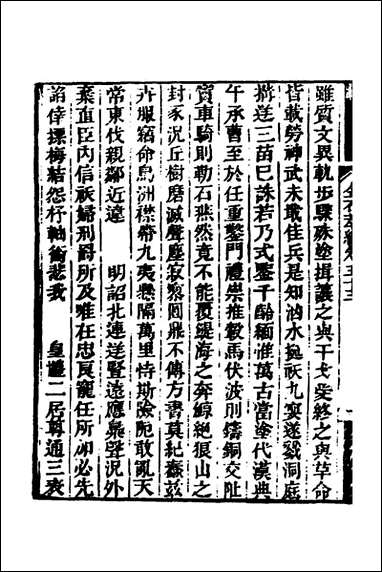 金石萃編卷五十三 一
雖質文異軌步驟殊塗揖讓之與干戈受終之與革命
皆載勞神武未戢佳兵是知汹水挻祅九嬰遂戮洞庭
搆逆三苗已誅若乃式鑒千齡緬惟萬古當塗代漢典
午承曹至於任重鑿門禮崇推轂馬伏波則鑄銅交阯
竇車騎則勒石燕然竟不能覆鯷海之奔鯨絕狼山之
封豕況丘樹磨滅聲塵寂寥圓鼎不傳方書莫紀蠢茲
卉服竊命島洲襟帶九夷懸隔萬里恃斯險阨敢亂天
常東伐親鄰近違　明詔北連逆豎遠應梟聲況外
棄直臣內信祅婦刑罰所及唯在忠良寵任所加必先
諂倖摽梅結怨杼軸銜悲我　皇體二居尊通三表